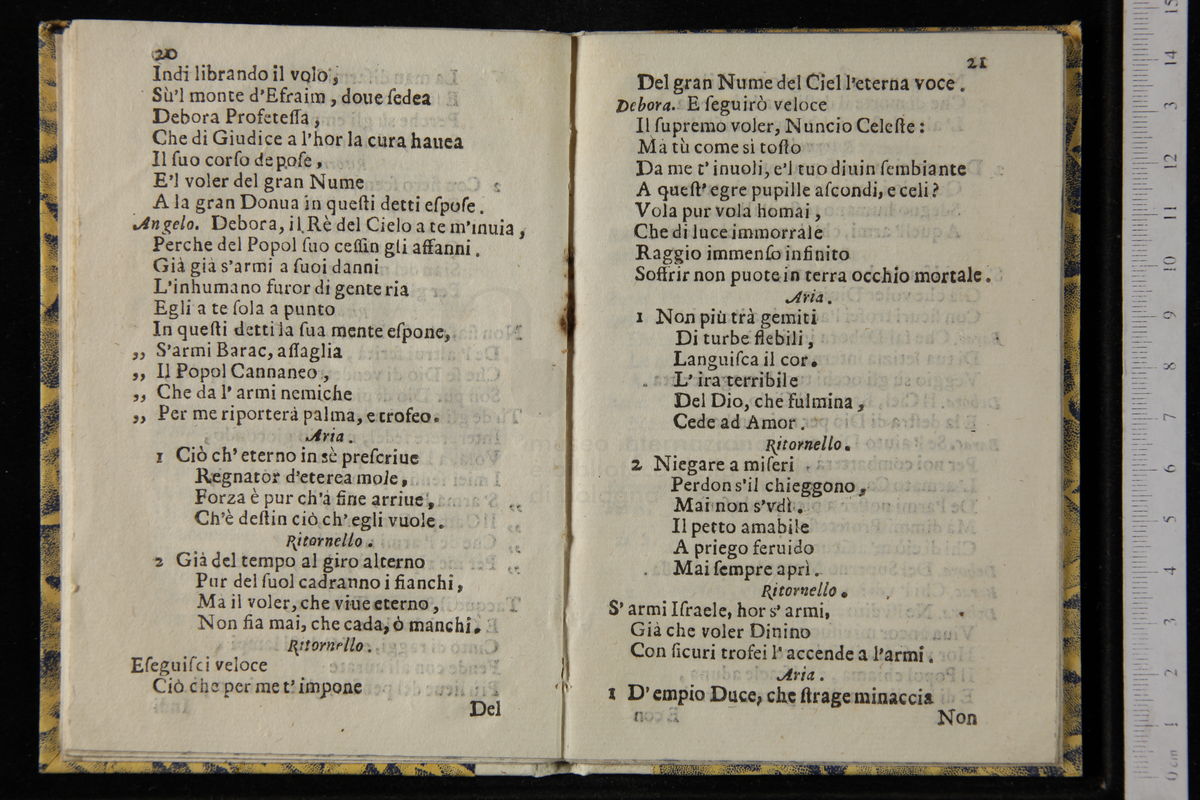 20
Indi librando il volo,
Sù'l monte d'Efraim, doue ſedea
Debora Profeteſſa,
Che di Giudice a l'hor la cura hauea
Il ſuo corſo depoſe,
E'l voler del gran Nume
A la gran Donua in queſti detti eſpoſe.
Angelo. Debora, il Rè del Cielo a te m'inuia,
Perche del Popol ſuo ceſſin gli affanni.
Già già s'armi a ſuoi danni
L'inhumano furor di gente ria
Egli a te ſola a punto
In queſti detti la ſua mente eſpone,
,, S'armi Barac, aſſaglia
,, Il Popol Cannaneo,
,, Che da l' armi nemiche
,, Per me riporterà palma, e trofeo.
Aria.
1 Ciò ch' eterno in sè preſcriue
Regnator d'eterea mole,
Forza è pur ch'à fine arriue,
Ch'è deſtin ciò ch' egli vuole.
Ritornello.
2 Già del tempo al giro alterno
Pur del ſuol cadranno i fianchi,
Ma il voler, che viue eterno,
Non fia mai, che cada, ò manchi.
Ritornello.
Eſeguiſci veloce
Ciò che per me t' impone
Del
21
Del gran Nume del Ciel l'eterna voce.
Debora. E ſeguirò veloce
Il ſupremo voler, Nuncio Celeſte:
Mà tù come sì toſto
Da me t' inuoli, e'l tuo diuin ſembiante
A queſt' egre pupille aſcondi, e celi?
Vola pur vola homai,
Che di luce immorrale
Raggio immenſo infinito
Soffrir non puote in terra occhio mortale.
Aria.
1 Non più trà gemiti
Di turbe flebili,
Languiſca il cor.
L' ira terribile
Del Dio, che fulmina,
Cede ad Amor.
Ritornello.
2 Niegare a miſeri
Perdon s'il chieggono,
Mai non s'vdì.
Il petto amabile
A priego feruido
Mai ſempre aprì.
Ritornello.
S' armi Iſraele, hor s' armi,
Già che voler Dinino
Con ſicuri trofei l' accende a l'armi.
Aria.
1 D' empio Duce, che ſtrage minaccia
Non